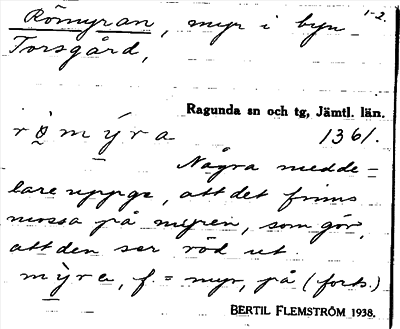 Römyran, myr i byn 1-2.
Torsgård,
Ragunda sn och tg, Jämtl. län.
rö̀mýra 1361.
Några medde=
lare uppge, att det finns
mossa på myren, som gör,
att den ser röd ut.
mỳra, f. = myr, på (forts.)
BERTIL FLEMSTRÖM 1938.